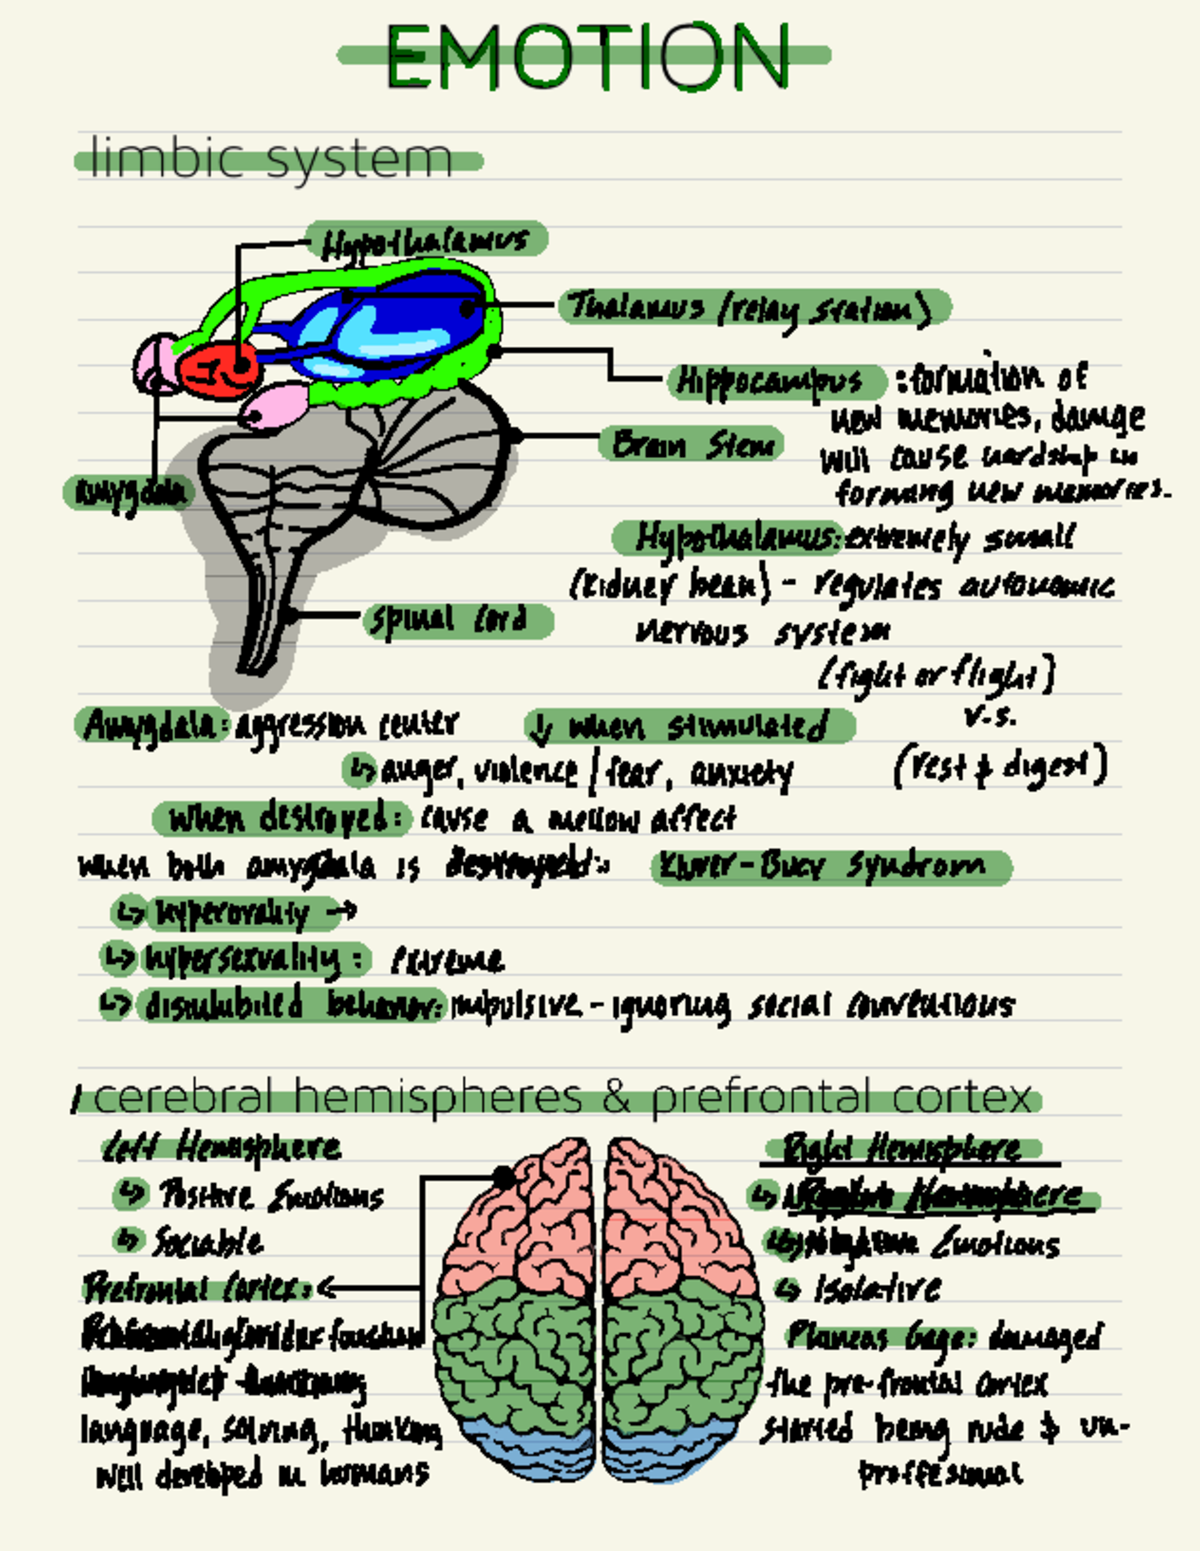 EMOTION
limbic system
Hypothalamus
Thalamus (relay station)
Hippocampus : formation of
new memories, damage
will cause hardship in
forming new memories.
Brain Stem
Amygdala
Hypothalamus: extremely small
(kidney bean) - regulates autonomic
nervous system
(fight or flight)
v.s.
(rest & digest)
spinal cord
Amygdala: aggression center ↓ when stimulated
↳ anger, violence / fear, anxiety
when destroyed: cause a mellow affect
when both amygdala is destroyed: Kluver-Bucy Syndrom
↳ hyperorality →
↳ hypersexuality: extreme
↳ disinhibited behavior: impulsive - ignoring social conventions
cerebral hemispheres & prefrontal cortex
Left Hemisphere
↳ Positive Emotions
↳ Sociable
Prefrontal Cortex:
language, solving, thinking
well developed in humans
Right Hemisphere
Hemisphere
Emotions
↳ Isolative
Phineas Gage: damaged
the pre-frontal cortex
started being rude & un-
proffesional